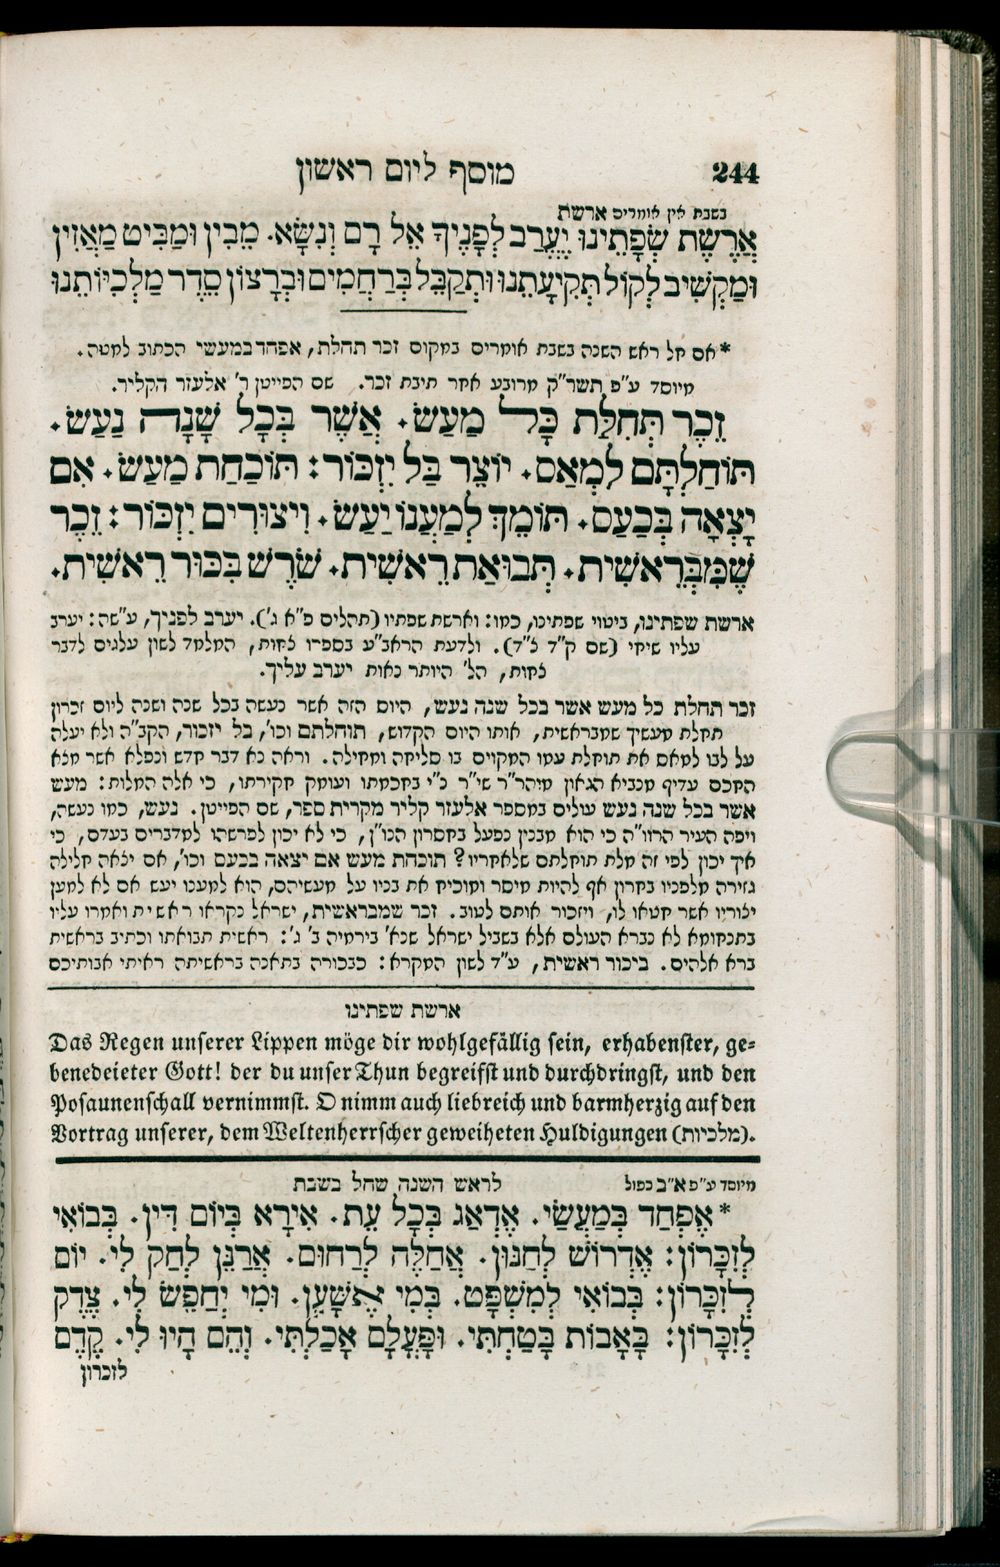 244
מוסף ליום ראשון
בשבת אין אומרים ארשת
אֲרֶשֶׁת שְׂפָתֵינוּ יֶעֱרַב לְפָנֶיךָ אֵל רָם וְנִשָּׂא. מֵבִין וּמַבִּיט מַאֲזִין
וּמַקְשִׁיב לְקוֹל תְּקִיעָתֵנוּ וּתְקַבֵּל בְּרַחֲמִים וּבְרָצוֹן סֵדֶר מַלְכִיּוֹתֵנוּ
*אם חל ראש השנה בשבת אומרים במקום זכר תחלת, אפחד במעשי הכתוב למטה.
מיוסד ע"פ תשר"ק מרובע אחר תיבת זכר. שם הפייטן ר' אלעזר הקליר.
זֵכֶר תְּחִלַּת כָּל מַעַשׂ. אֲשֶׁר בְּכָל שָׁנָה נַעַשׂ.
תּוֹחַלְתָּם לִמְאַס. יוֹצֵר בַּל יִזְכּוֹר: תּוֹכַחַת מַעַשׂ. אִם
יָצְאָה בְּכַעַס. תּוֹמֵךְ לְמַעֲנוֹ יַעַשׂ. וִיצוּרִים יִזְכּוֹר: זֵכֶר
שֶׁמִּבְּרֵאשִׁית. תְּבוּאַת רֵאשִׁית. שֹׁרֶשׁ בִּכּוּר רֵאשִׁית.
ארשת שפתינו, ביטוי שפתינו, כמו: וארשת שפתיו (תהלים כ"א ג'). יערב לפניך, ע"שה: יערב
עליו שיחי (שם ק"ד ל"ד). ולדעת הראב"ע בספרו צחות, המלמד לשון עלגים לדבר
צחות, הל' היותר נאות יערב עליך.
זכר תחלת כל מעש אשר בכל שנה נעש, היום הזה אשר נעשה בכל שנה ושנה ליום זכרון
תחלת מעשיך שמבראשית, אותו היום הקדוש, תוחלתם וכו', בל יזכור, הקב"ה ולא יעלה
על לבו למאס את תוחלת עמו המקוים בו סליחה ומחילה. וראה נא דבר חדש ונפלא אשר מצא
החכם עדיף מנביא הגאון מוהר"ר שי"ר נ"י בחכמתו ועומק חקירתו, כי אלה המלות: מעש
אשר בכל שנה נעש עולים במספר אלעזר קליר מקרית ספר, שם הפייטן. נעש, כמו נעשה,
ויפה העיר הרוו"ה כי הוא מבנין נפעל בחסרון הנו"ן, כי לא יכון לפרשהו למדברים בעדם, כי
איך יכון לפי זה מלת תוחלתם שלאחריו? תוכחת מעש אם יצאה בכעס וכו', אם יצאה חלילה
גזירה מלפניו בחרון אף להיות מיסר ומוכיח את בניו על מעשיהם, הוא למענו יעש אם לא למען
יצוריו אשר חטאו לו, ויזכור אותם לטוב. זכר שמבראשית, ישראל נקראו ראשית ואמרו עליו
בתנחומא לא נברא העולם אלא בשביל ישראל שנא' בירמיה ב' ג': ראשית תבואתו וכתיב בראשית
ברא אלהים. ביכור ראשית, ע"ד לשון המקרא: כבכורה בתאנה בראשיתה ראיתי אבותיכם
ארשת שפתינו
Das Regen unserer Lippen möge dir wohlgefällig sein, erhabenster, ge-
benedeieter Gott! der du unser Thun begreifst und durchdringst, und den
Posaunenschall vernimmst. O nimm auch liebreich und barmherzig auf den
Vortrag unserer, dem Weltenherrscher geweiheten Huldigungen (מלכיות).
מיוסד ע"פ א"ב כפול
לראש השנה שחל בשבת
*אֶפְחַד בְּמַעֲשַׂי. אֶדְאַג בְּכָל עֵת. אִירָא בְּיוֹם דִּין. בְּבוֹאִי
לְזִכָּרוֹן: אֶדְרוֹשׁ לְחַנּוּן. אֲחַלֶּה לְרַחוּם. אֲרַנֵּן לְחַק לִי. יוֹם
לְזִכָּרוֹן: בְּבוֹאִי לְמִשְׁפָּט. בְּמִי אֶשָּׁעֵן. וּמִי יְחַפֵּשׂ לִי. צֶדֶק
לְזִכָּרוֹן: בָּאָבוֹת בָּטַחְתִּי. וּפָעֳלָם אָכַלְתִּי. וְהֵם הָיוּ לִי. קֶדֶם
לזכרון